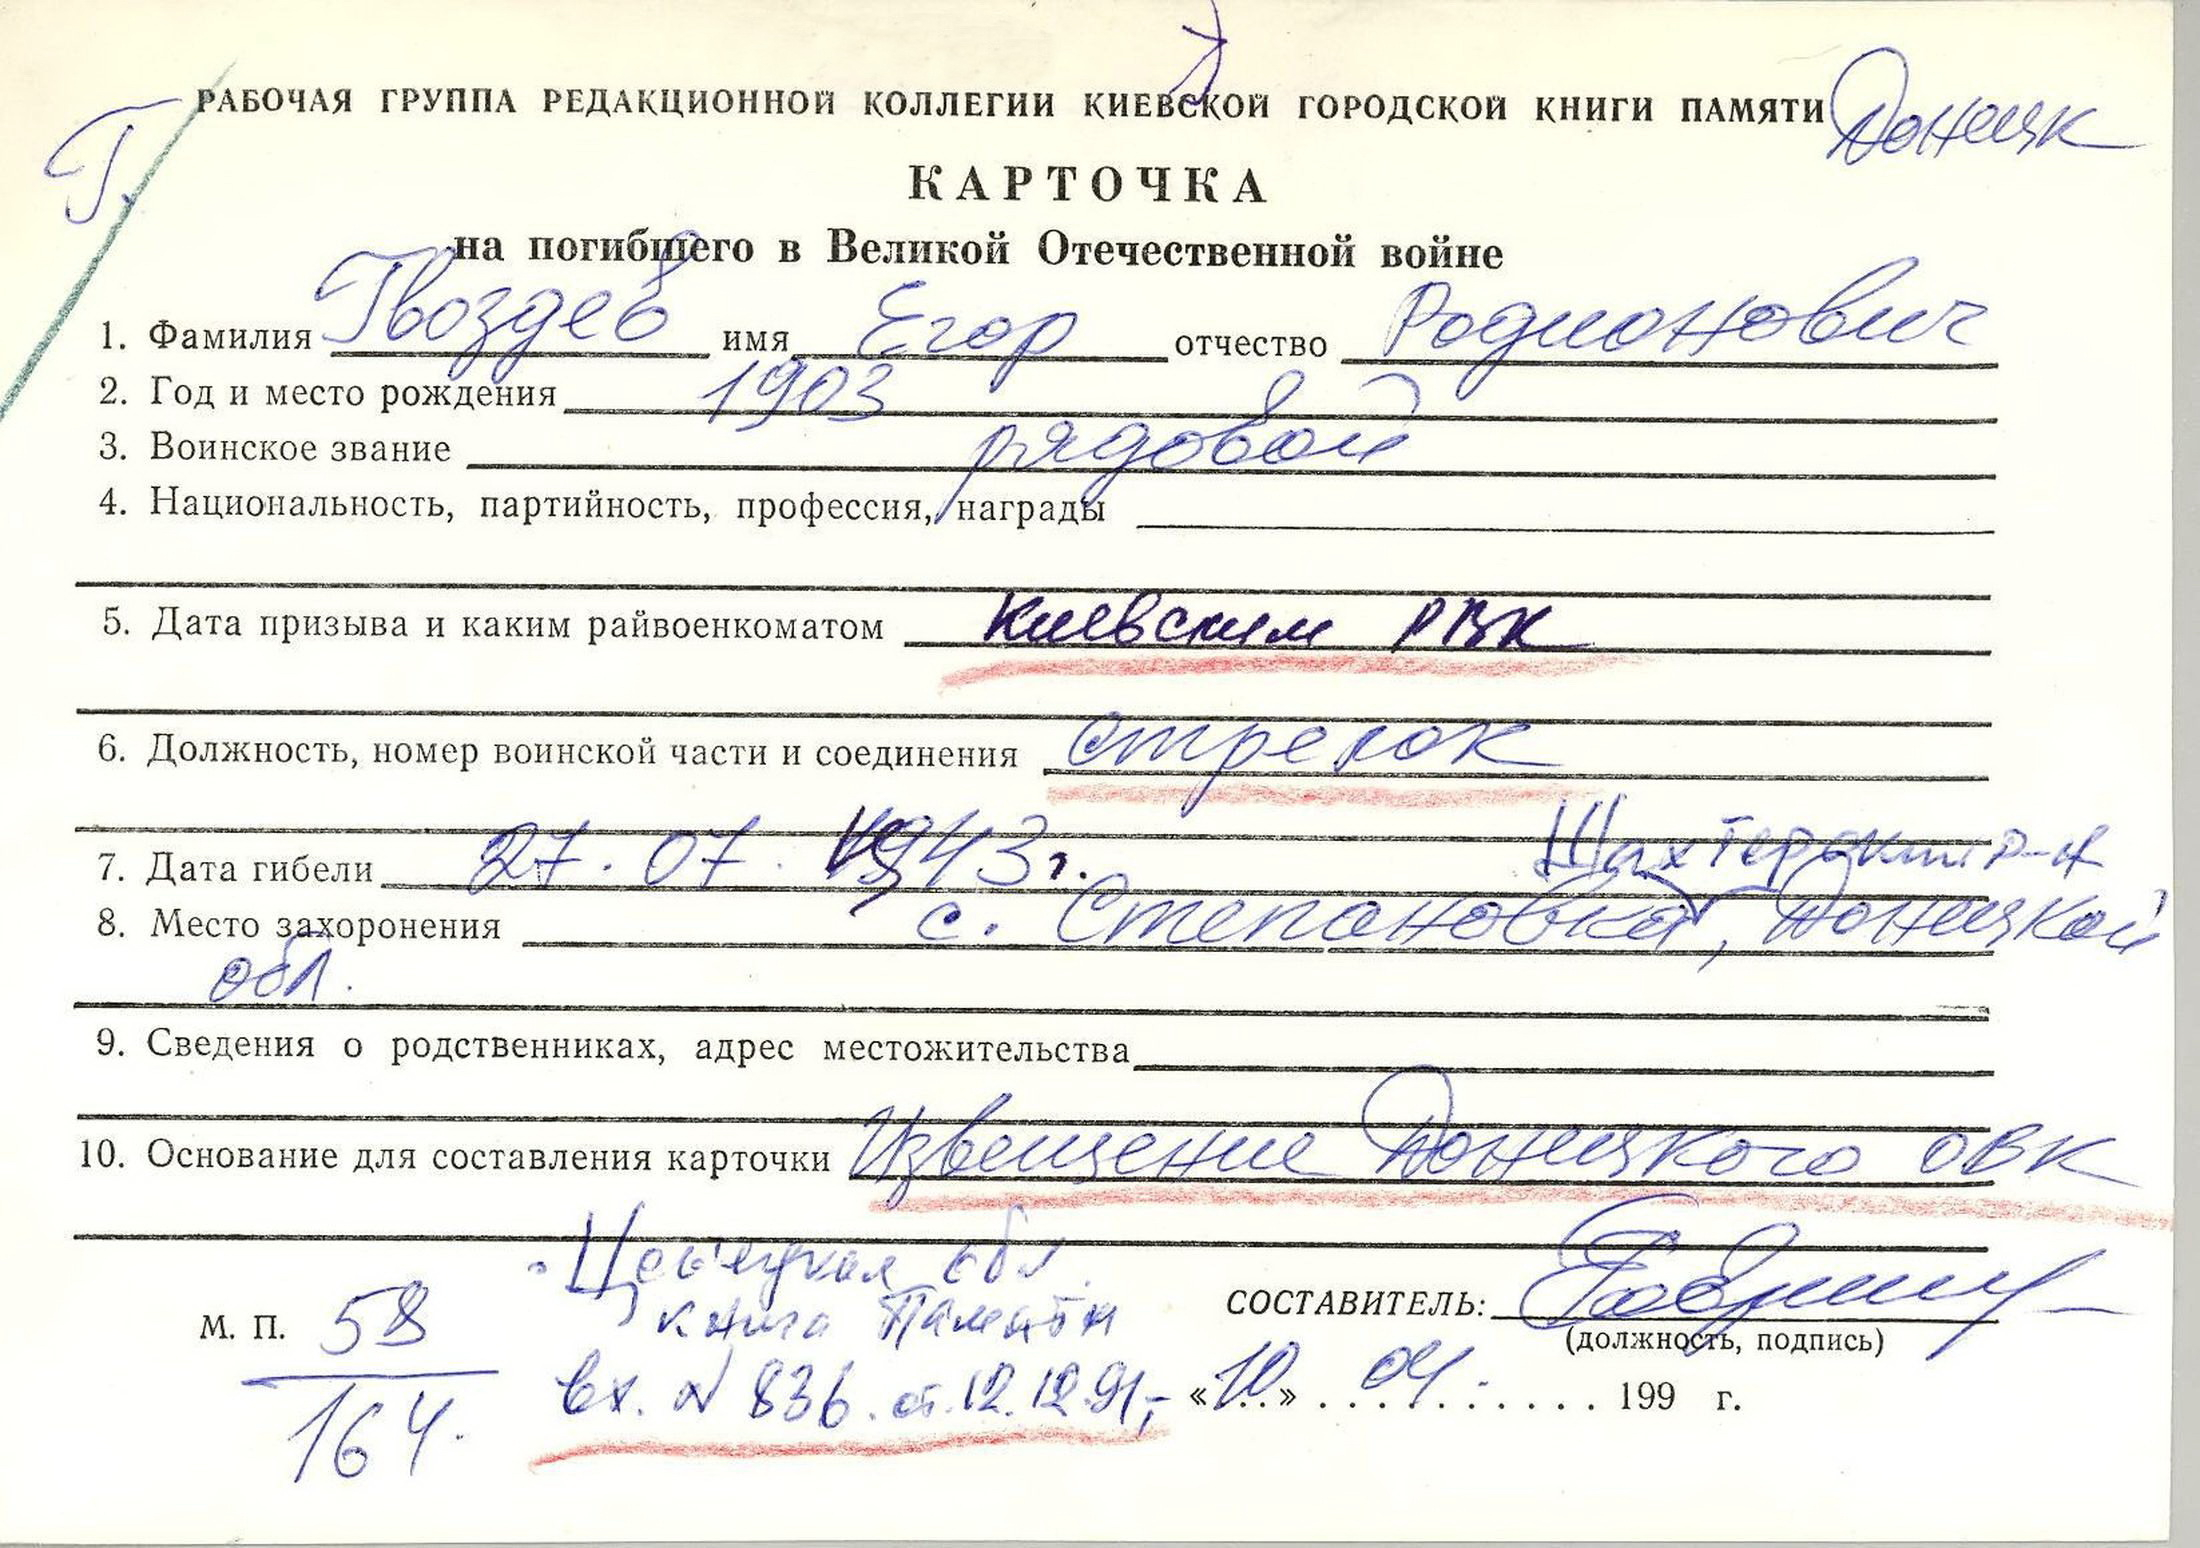 РАБОЧАЯ ГРУППА РЕДАКЦИОННОЙ КОЛЛЕГИИ КИЕВСКОЙ ГОРОДСКОЙ КНИГИ ПАМЯТИ Донецк
Г.
КАРТОЧКА
на погибшего в Великой Отечественной войне
1. Фамилия Гвоздев имя Егор отчество Родионович
2. Год и место рождения 1903
3. Воинское звание рядовой
4. Национальность, партийность, профессия, награды
5. Дата призыва и каким райвоенкоматом Киевским РВК
6. Должность, номер воинской части и соединения стрелок
7. Дата гибели 27.07.1943г. Шахтерский р-н
8. Место захоронения с. Степановка, Донецкой
обл.
9. Сведения о родственниках, адрес местожительства
10. Основание для составления карточки Извещение Донецкого ОВК
обл.
книга Памяти
М. П. 58
164.
СОСТАВИТЕЛЬ:
(должность, подпись)
вх. № 836. от. 12.12.91, «10» 04. 199 г.